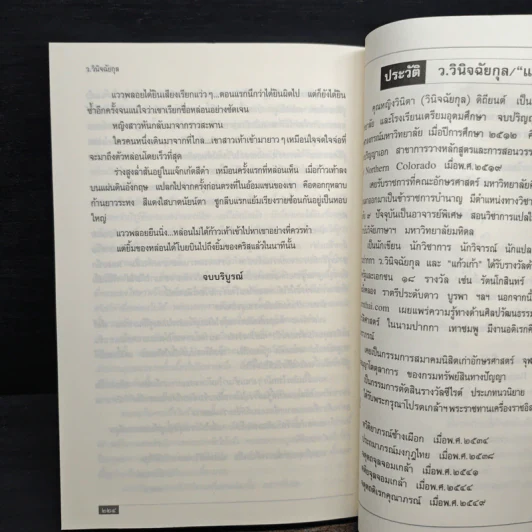 ว.วินิจฉัยกุล
แววพลอยได้ยินเสียงเรียกแว่วๆ...ตอนแรกนึกว่าได้ยินผิดไป แต่ก็ยังได้ยิน
ซ้ำอีกครั้งจนแน่ใจว่าเขาเรียกชื่อหล่อนอย่างชัดเจน
หญิงสาวหันกลับมาจากราวสะพาน
ใครคนหนึ่งเดินมาจากที่ไกล...เขาสาวเท้าเข้ามายาวๆ เหมือนใจจดใจจ่อที่
จะมาถึงตัวหล่อนโดยเร็วที่สุด
ร่างสูงล่ำสันอยู่ในแจ็กเก็ตสีดำ เหมือนครั้งแรกที่หล่อนเห็น เมื่อก้าวเท้าลง
บนแผ่นดินอังกฤษ แปลกไปจากครั้งก่อนตรงที่ในอ้อมแขนของเขา คือดอกกุหลาบ
ก้านยาวระหง สีแดงใสบาดนัยน์ตา ชูกลีบแรกแย้มเรียงรายซ้อนกันอยู่เป็นหอบ
ใหญ่
แววพลอยยืนนิ่ง...หล่อนไม่ได้ก้าวเท้าเข้าไปหาเขาอย่างที่ควรทำ
แต่ยิ้มของหล่อนได้โบยบินไปถึงยิ้มของคริสแล้วในนาทีนั้น
จบบริบูรณ์
๒๒๔
ประวัติ ว.วินิจฉัยกุล/"แ
คุณหญิงวินิตา (วินิจฉัยกุล) ดิถียนต์ เป็น
และโรงเรียนเตรียมอุดมศึกษา จบปริญ
มหาวิทยาลัย เมื่อปีการศึกษา ๒๕๑๒
สาขาการวางหลักสูตรและการสอนวรร
Northern Colorado เมื่อพ.ศ.๒๕๑๙
เคยรับราชการที่คณะอักษรศาสตร์ มหาวิทยาลัยศิ
มาเป็นข้าราชการบำนาญ มีตำแหน่งทางวิชา
๙ ปัจจุบันเป็นอาจารย์พิเศษ สอนวิชาการแปลใ
มหาวิทยาลัยมหิดล
เป็นนักเขียน นักวิชาการ นักวิจารณ์ นักแปล
ว.วินิจฉัยกุล และ "แก้วเก้า" ได้รับรางวัล
๑๘ รางวัล เช่น รัตนโกสินทร์
ราตรีประดับดาว บูรพา ฯลฯ นอกจากนี้
เผยแพร่ความรู้ทางด้านศิลปวัฒนธรรม
ในนามปากกา เทาชมพู มีงานอดิเรกคื
เคยเป็นกรรมการสมาคมนิสิตเก่าอักษรศาสตร์ จุฬ
ของกรมทรัพย์สินทางปัญญา
เป็นกรรมการตัดสินรางวัลซีไรต์ ประเภทนวนิยาย
ได้รับพระกรุณาโปรดเกล้าฯ พระราชทานเครื่องราชอิส
เมื่อพ.ศ.๒๕๓๔
เมื่อพ.ศ.๒๕๓๘
เมื่อพ.ศ.๒๕๔๑
เมื่อพ.ศ.๒๕๔๔
เมื่อพ.ศ.๒๕๔๙